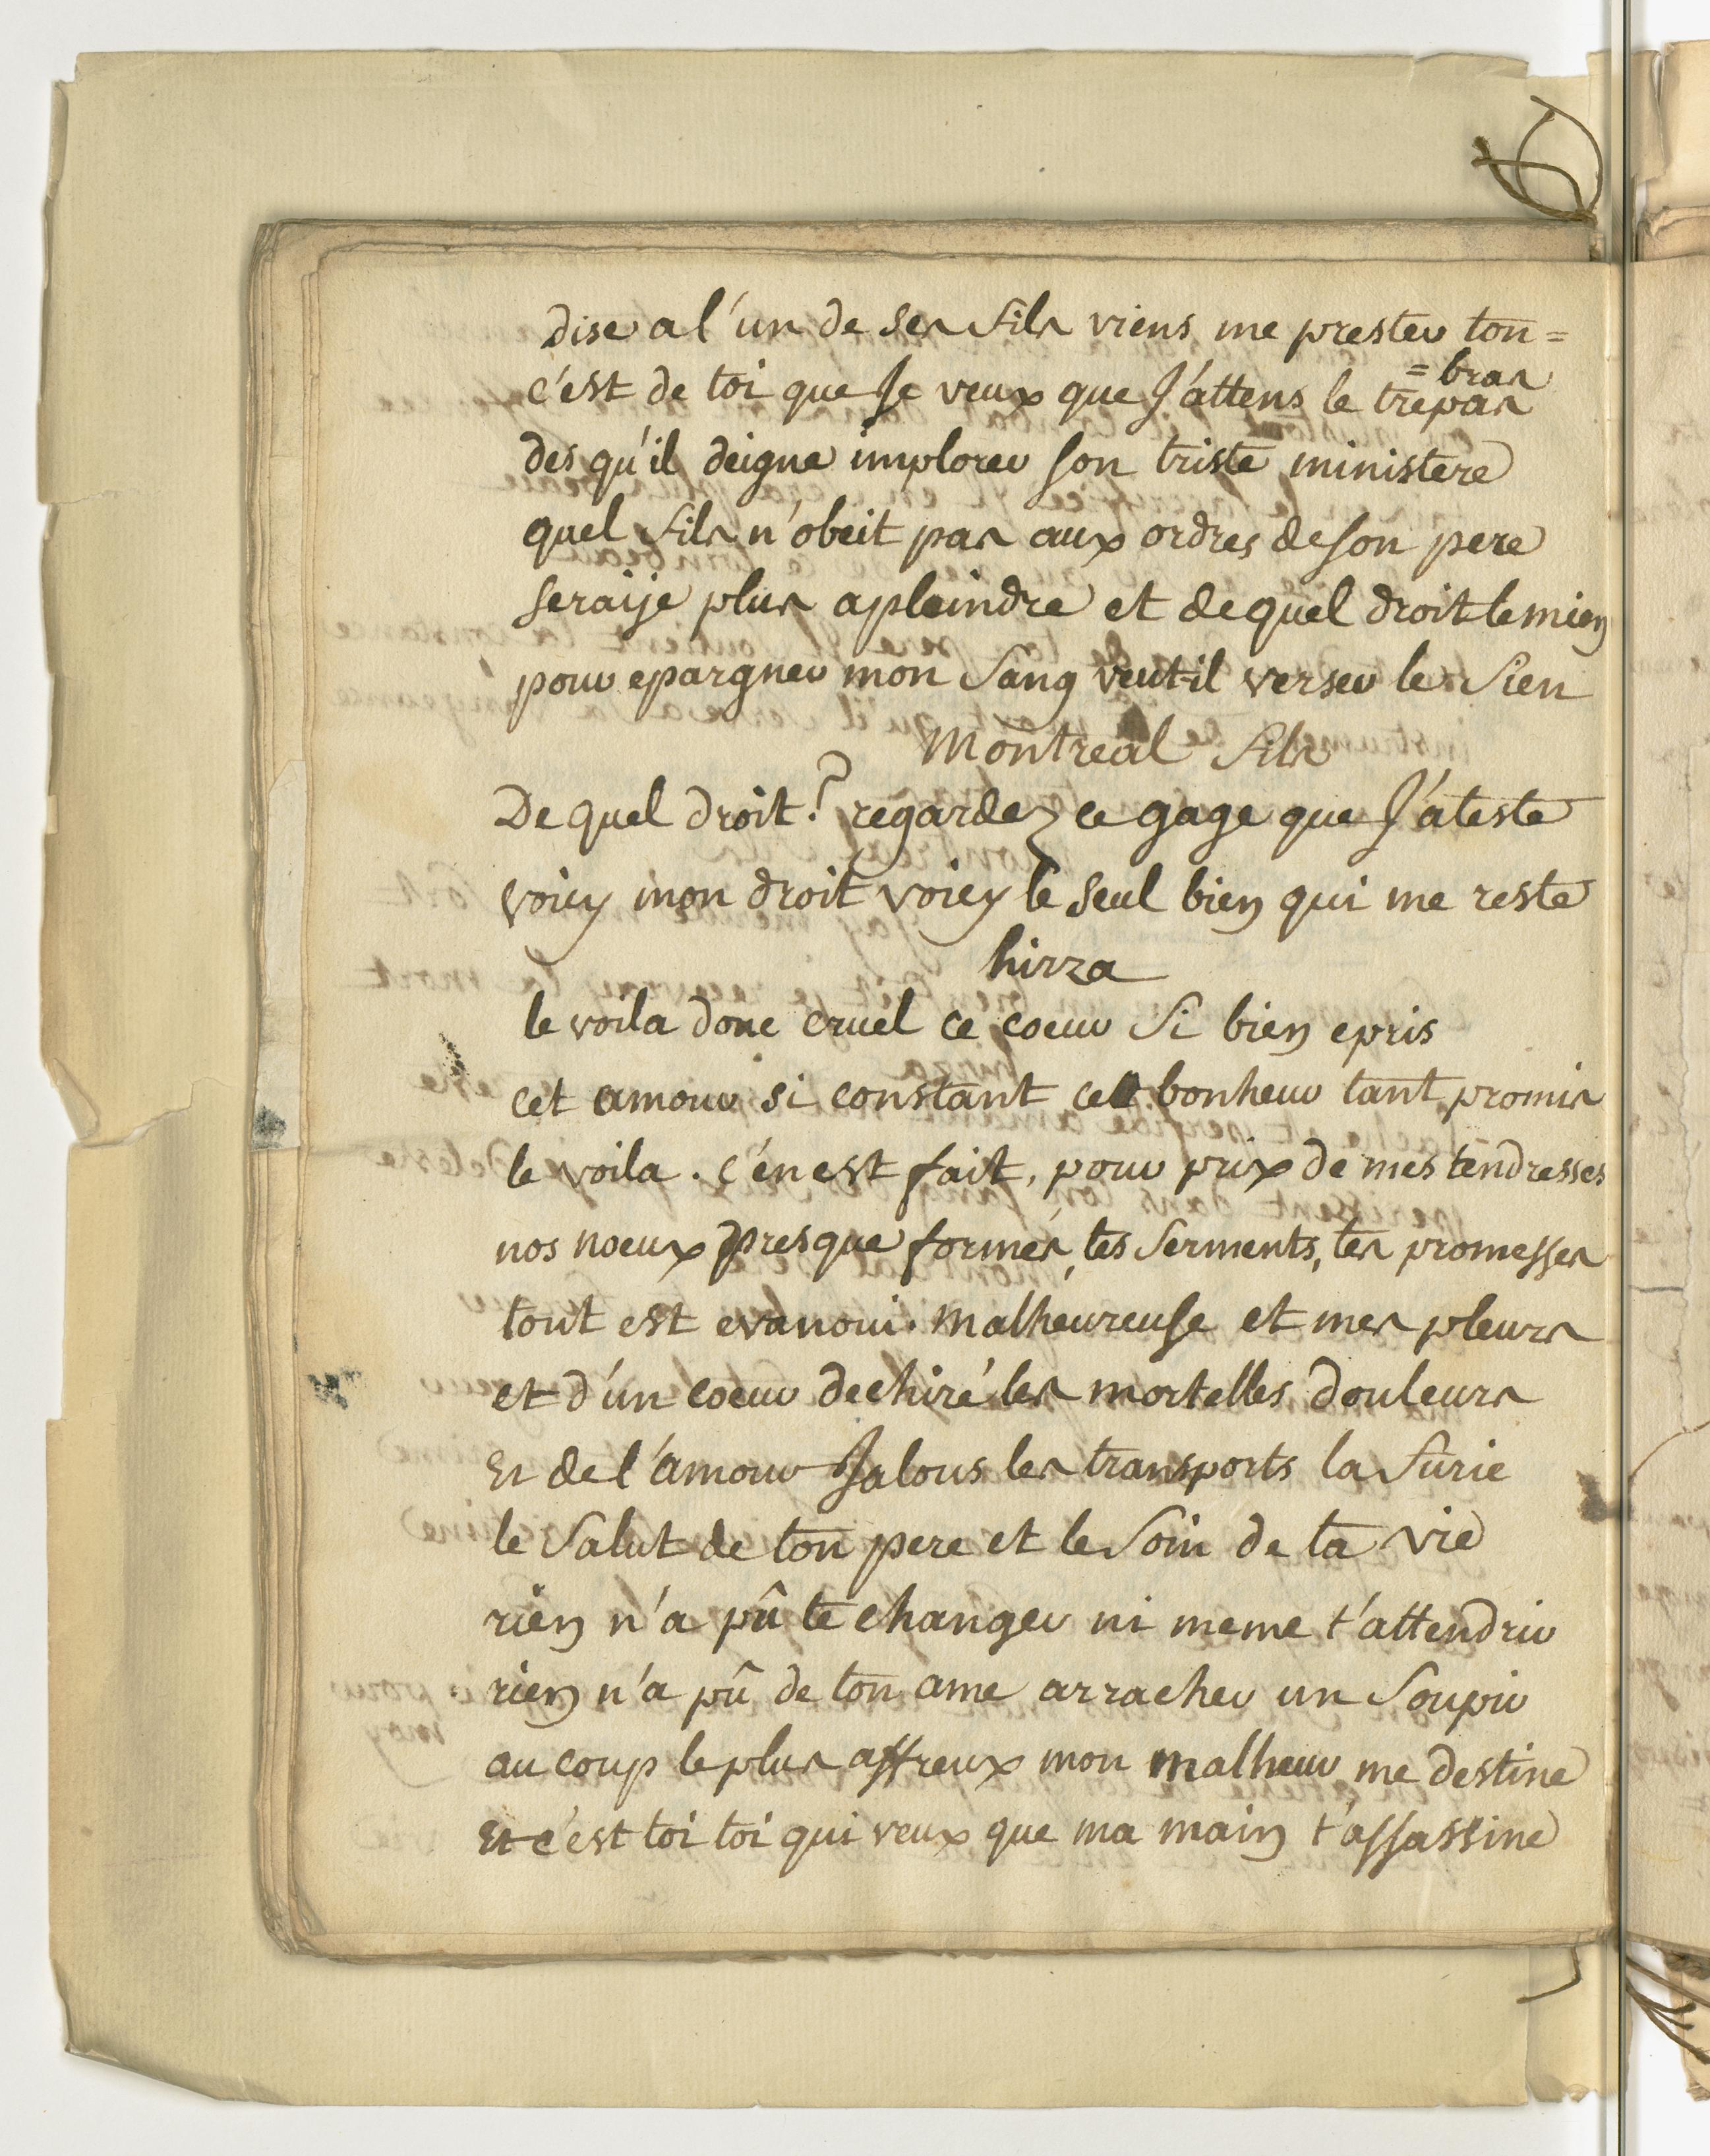 dise a l'un de ses fils viens me prester ton=
=bras
c'est de toi que Je veux que J'attens le trepas
des qu'il deigne implorer son triste ministere
quel fils n'obeit pas aux ordres de son pere
seraije plus a pleindre et de quel droit le mien
pour epargner mon sang veut-il verser le sien
Montreal fils
De quel droit? regardez ce gage que J'ateste
voicy mon droit voicy le seul bien qui me reste
hirza
le voila donc cruel ce coeur si bien epris
cet amour si constant ce bonheur tant promis
le voila. c'en est fait, pour prix de mes tendresses
nos noeux presque formés, tes serments, tes promesses
tout est evanoui. malheureuse et mes pleurs
et d'un coeur dechiré les mortelles douleurs
Et de l'amour Jalous les transports la furie
le salut de ton pere et le soin de ta vie
rien n'a pû te changer ni meme t'attendrir
rien n'a pû de ton ame arracher un soupir
au coup le plus affreux mon malheur me destine
Et c'est toi toi qui veux que ma main t'assassine